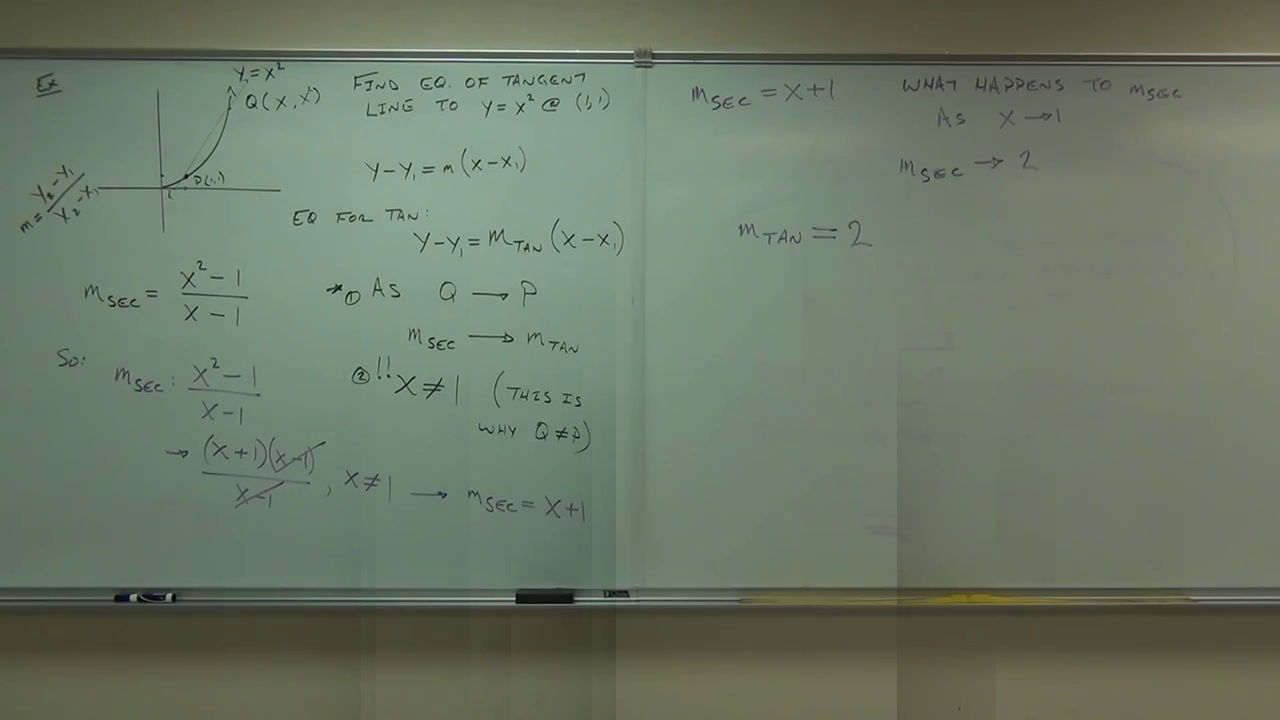 Ex
y=x²
Q(x, x²)
P(1,1)
1
m = y₂-y₁ / x₂-x₁
FIND EQ. OF TANGENT
LINE TO y=x² @ (1,1)
y-y₁=m(x-x₁)
EQ FOR TAN:
y-y₁=m_TAN(x-x₁)
m_SEC = x²-1 / x-1
*① As Q → P
m_SEC → m_TAN
So: m_SEC: x²-1 / x-1
② !! x≠1 (THIS IS
WHY Q≠P)
→ (x+1)(x-1) / x-1 , x≠1 → m_SEC = x+1
m_SEC = x+1
WHAT HAPPENS TO m_SEC
As x→1
m_SEC → 2
m_TAN = 2